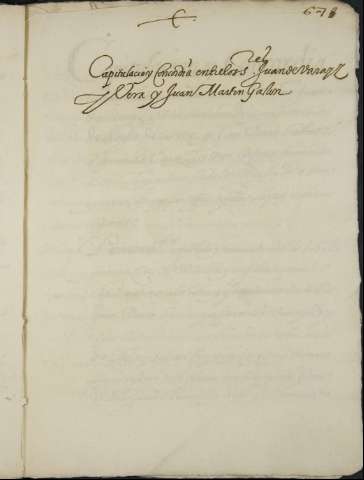 678
Capitulacion y Concordia entre los Sres Juan de
Vera y Juan Martin Galan